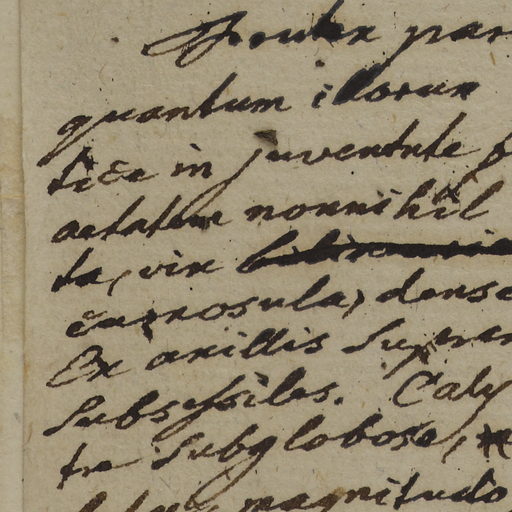 Frutex par
quantum illorum
tice in juventute f
aetatem nonnihil
ta, vix
cymosula, dense
Ex axillis Super
Subsessiles. Caly
tre Subglobose,
magnitudo